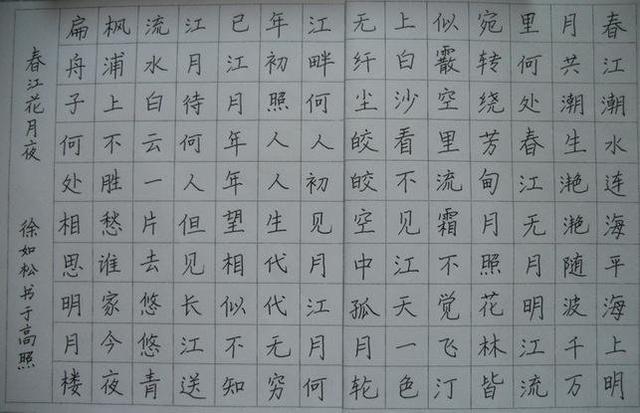 春江潮水连海平海上明
月共潮生滟滟随波千万
里何处春江无月明江流
宛转绕芳甸月照花林皆
似霰空里流霜不觉飞汀
上白沙看不见江天一色
无纤尘皎皎空中孤月轮
江畔何人初见月江月何
年初照人人生代代无穷
已江月年年望相似不知
江月待何人但见长江送
流水白云一片去悠悠青
枫浦上不胜愁谁家今夜
扁舟子何处相思明月楼
春江花月夜 徐如松书于高照